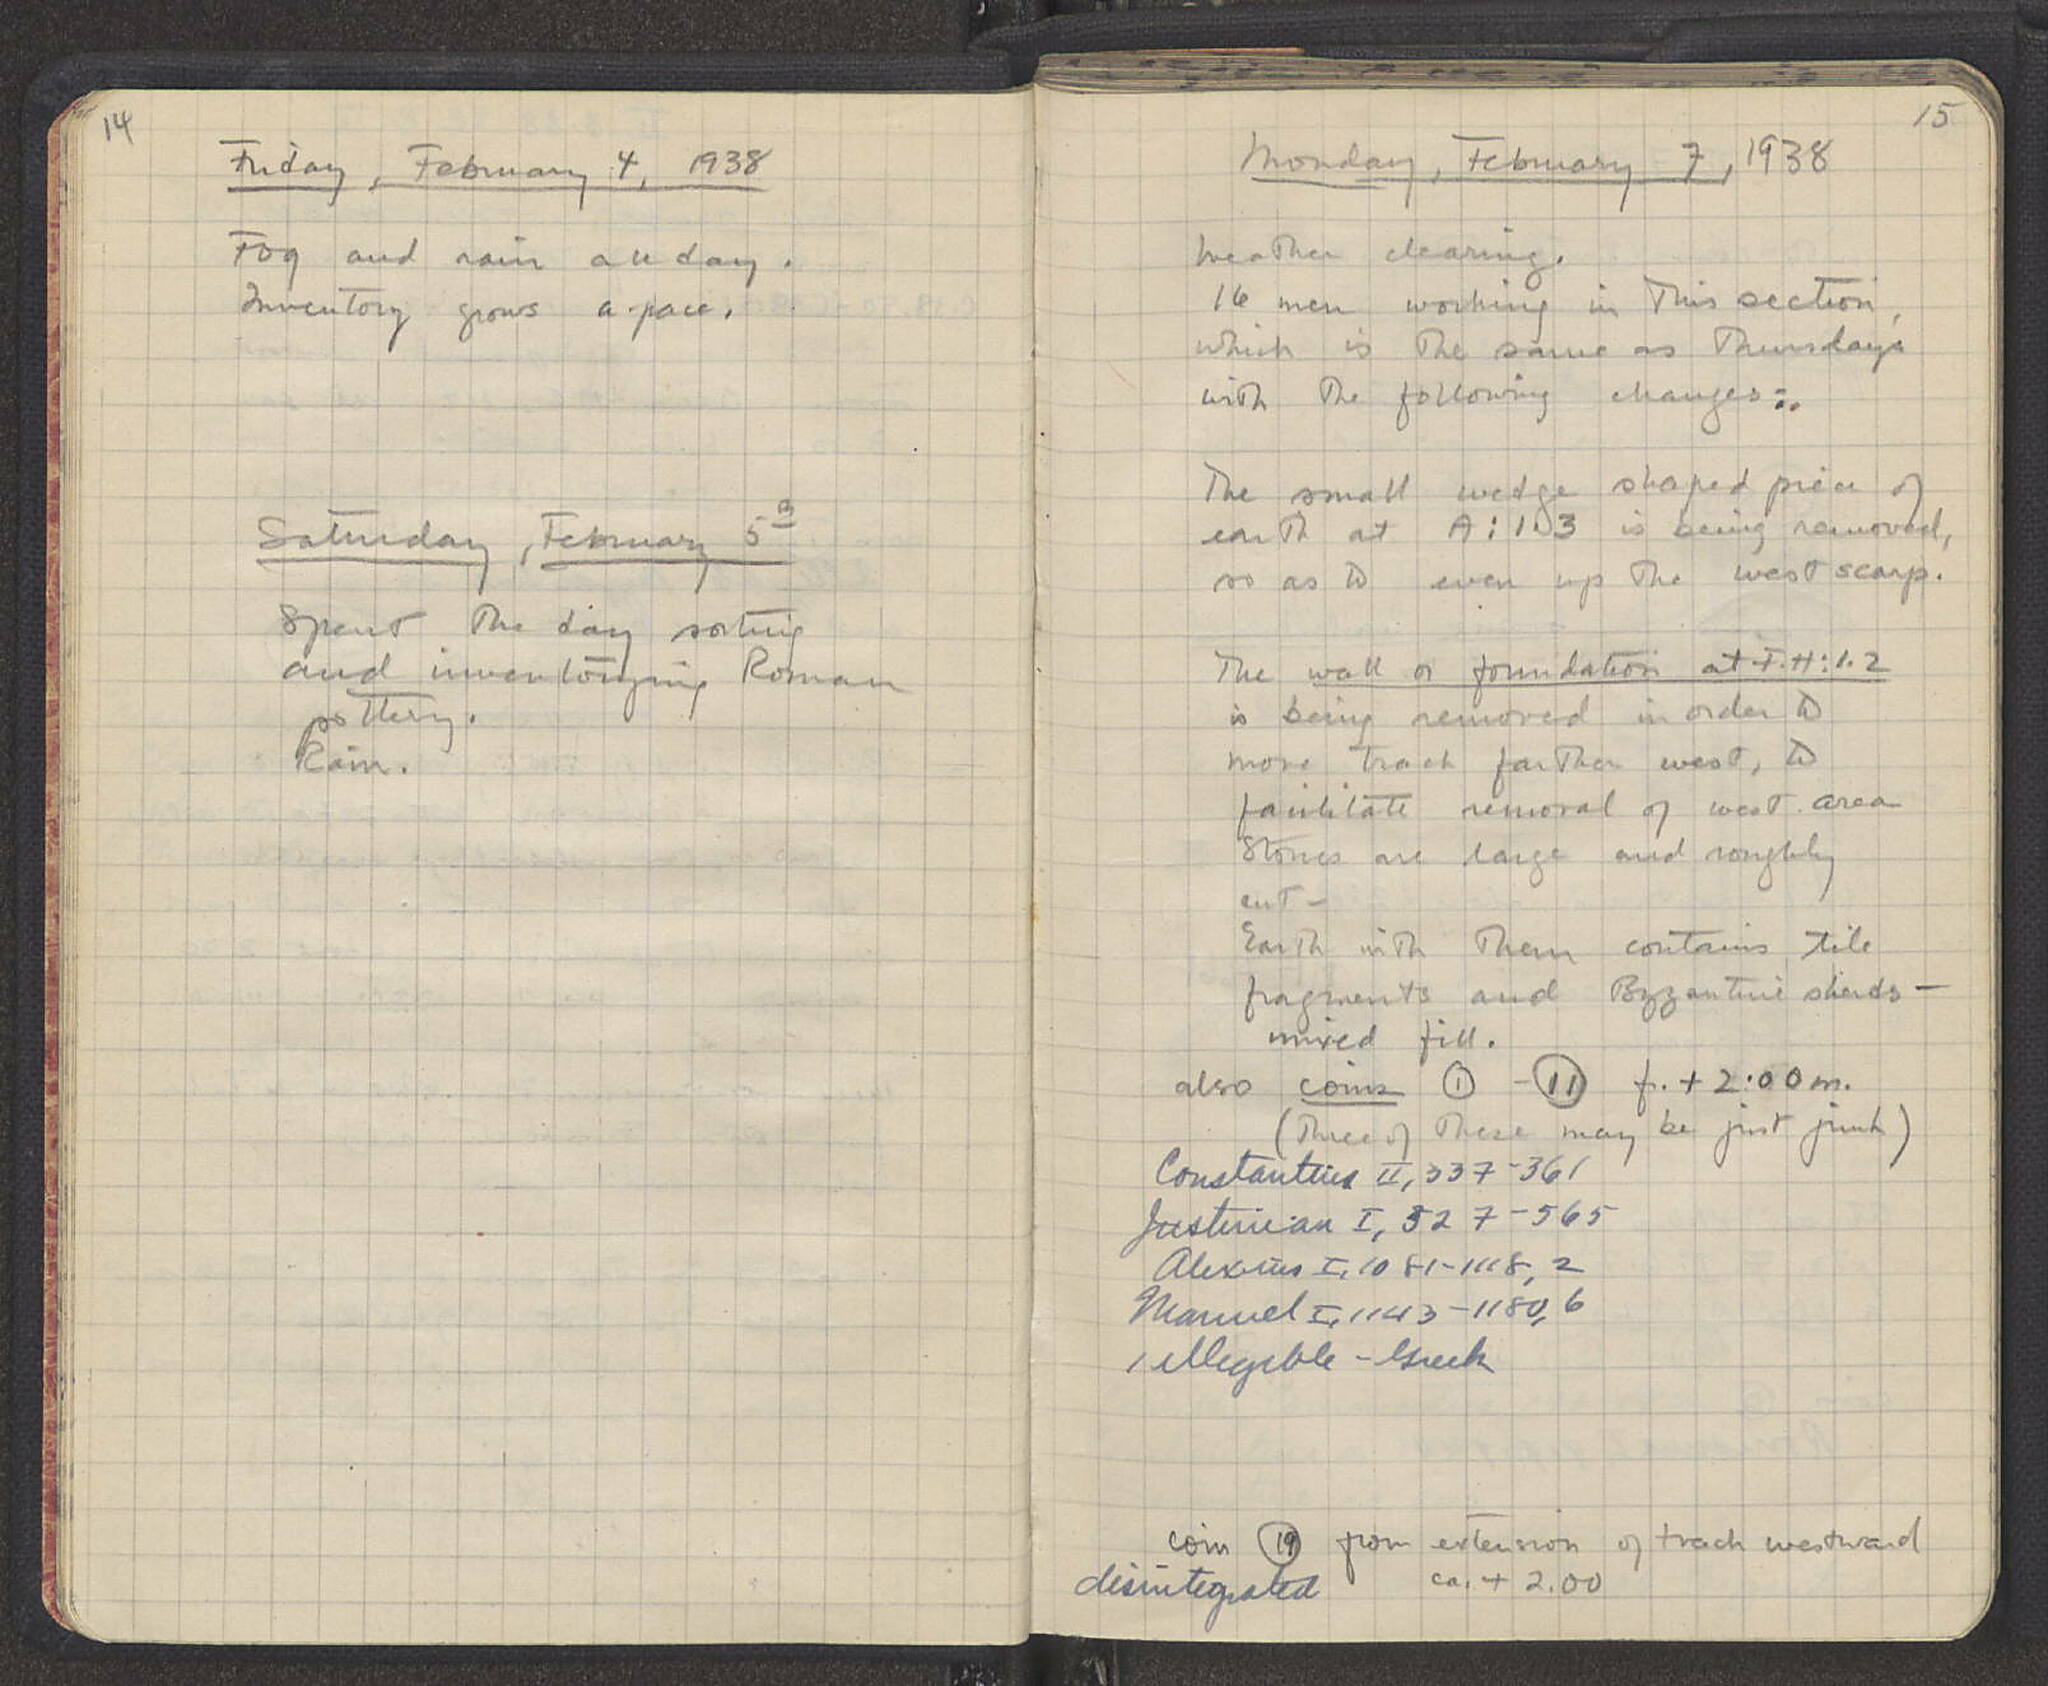 14
Friday, February 4, 1938
Fog and rain all day.
Inventory grows a-pace.
Saturday, February 5
Spent the day sorting
and inventorying Roman
pottery.
Rain.
15
Monday, February 7, 1938
Weather clearing.
16 men working in this section,
which is the same as Thursdays
with the following changes:
The small wedge shaped piece of
earth at A:1.3 is being removed,
so as to even up the west scarp.
The wall or foundation at F.H:1.2
is being removed in order to
move track farther west, to
facilitate removal of west area
Stones are large and roughly
cut -
Earth with them contains tile
fragments and Byzantine sherds -
mixed fill.
also coins 1 - 11 fr. + 2:00m.
(three of these may be just junk)
Constantius II, 337-361
Justinian I, 527-565
Alexius I, 1081-1118, 2
Manuel I, 1143-1180, 6
1 illegible - Greek
coin 19 from extension of track westward
disintegrated ca. + 2.00